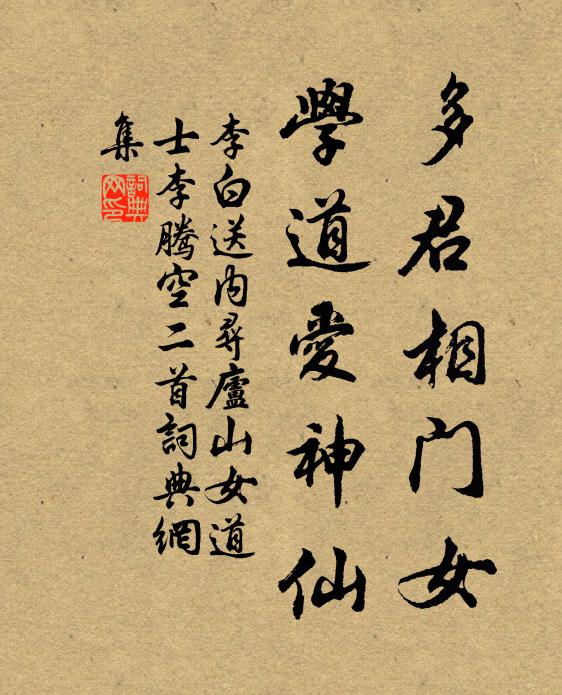 多君相门女
學道愛神仙
李白送内尋廬山女道
士李騰空二首詞典網
集
詞典
网印